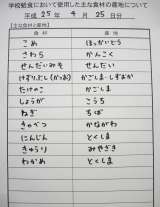 学校給食において使用した主な食材の産地について
平成 25 年 4 月 25 日分
【主な食材と産地】
食材 産地
こめ ほっかいどう
さわら かんこく
せんだいみそ せんだい
けずりぶし(かつお) かごしま・しずおか
たけのこ かごしま
しょうが こうち
ねぎ ちば
きゃべつ かながわ
にんじん とくしま
きゅうり みやざき
わかめ とくしま